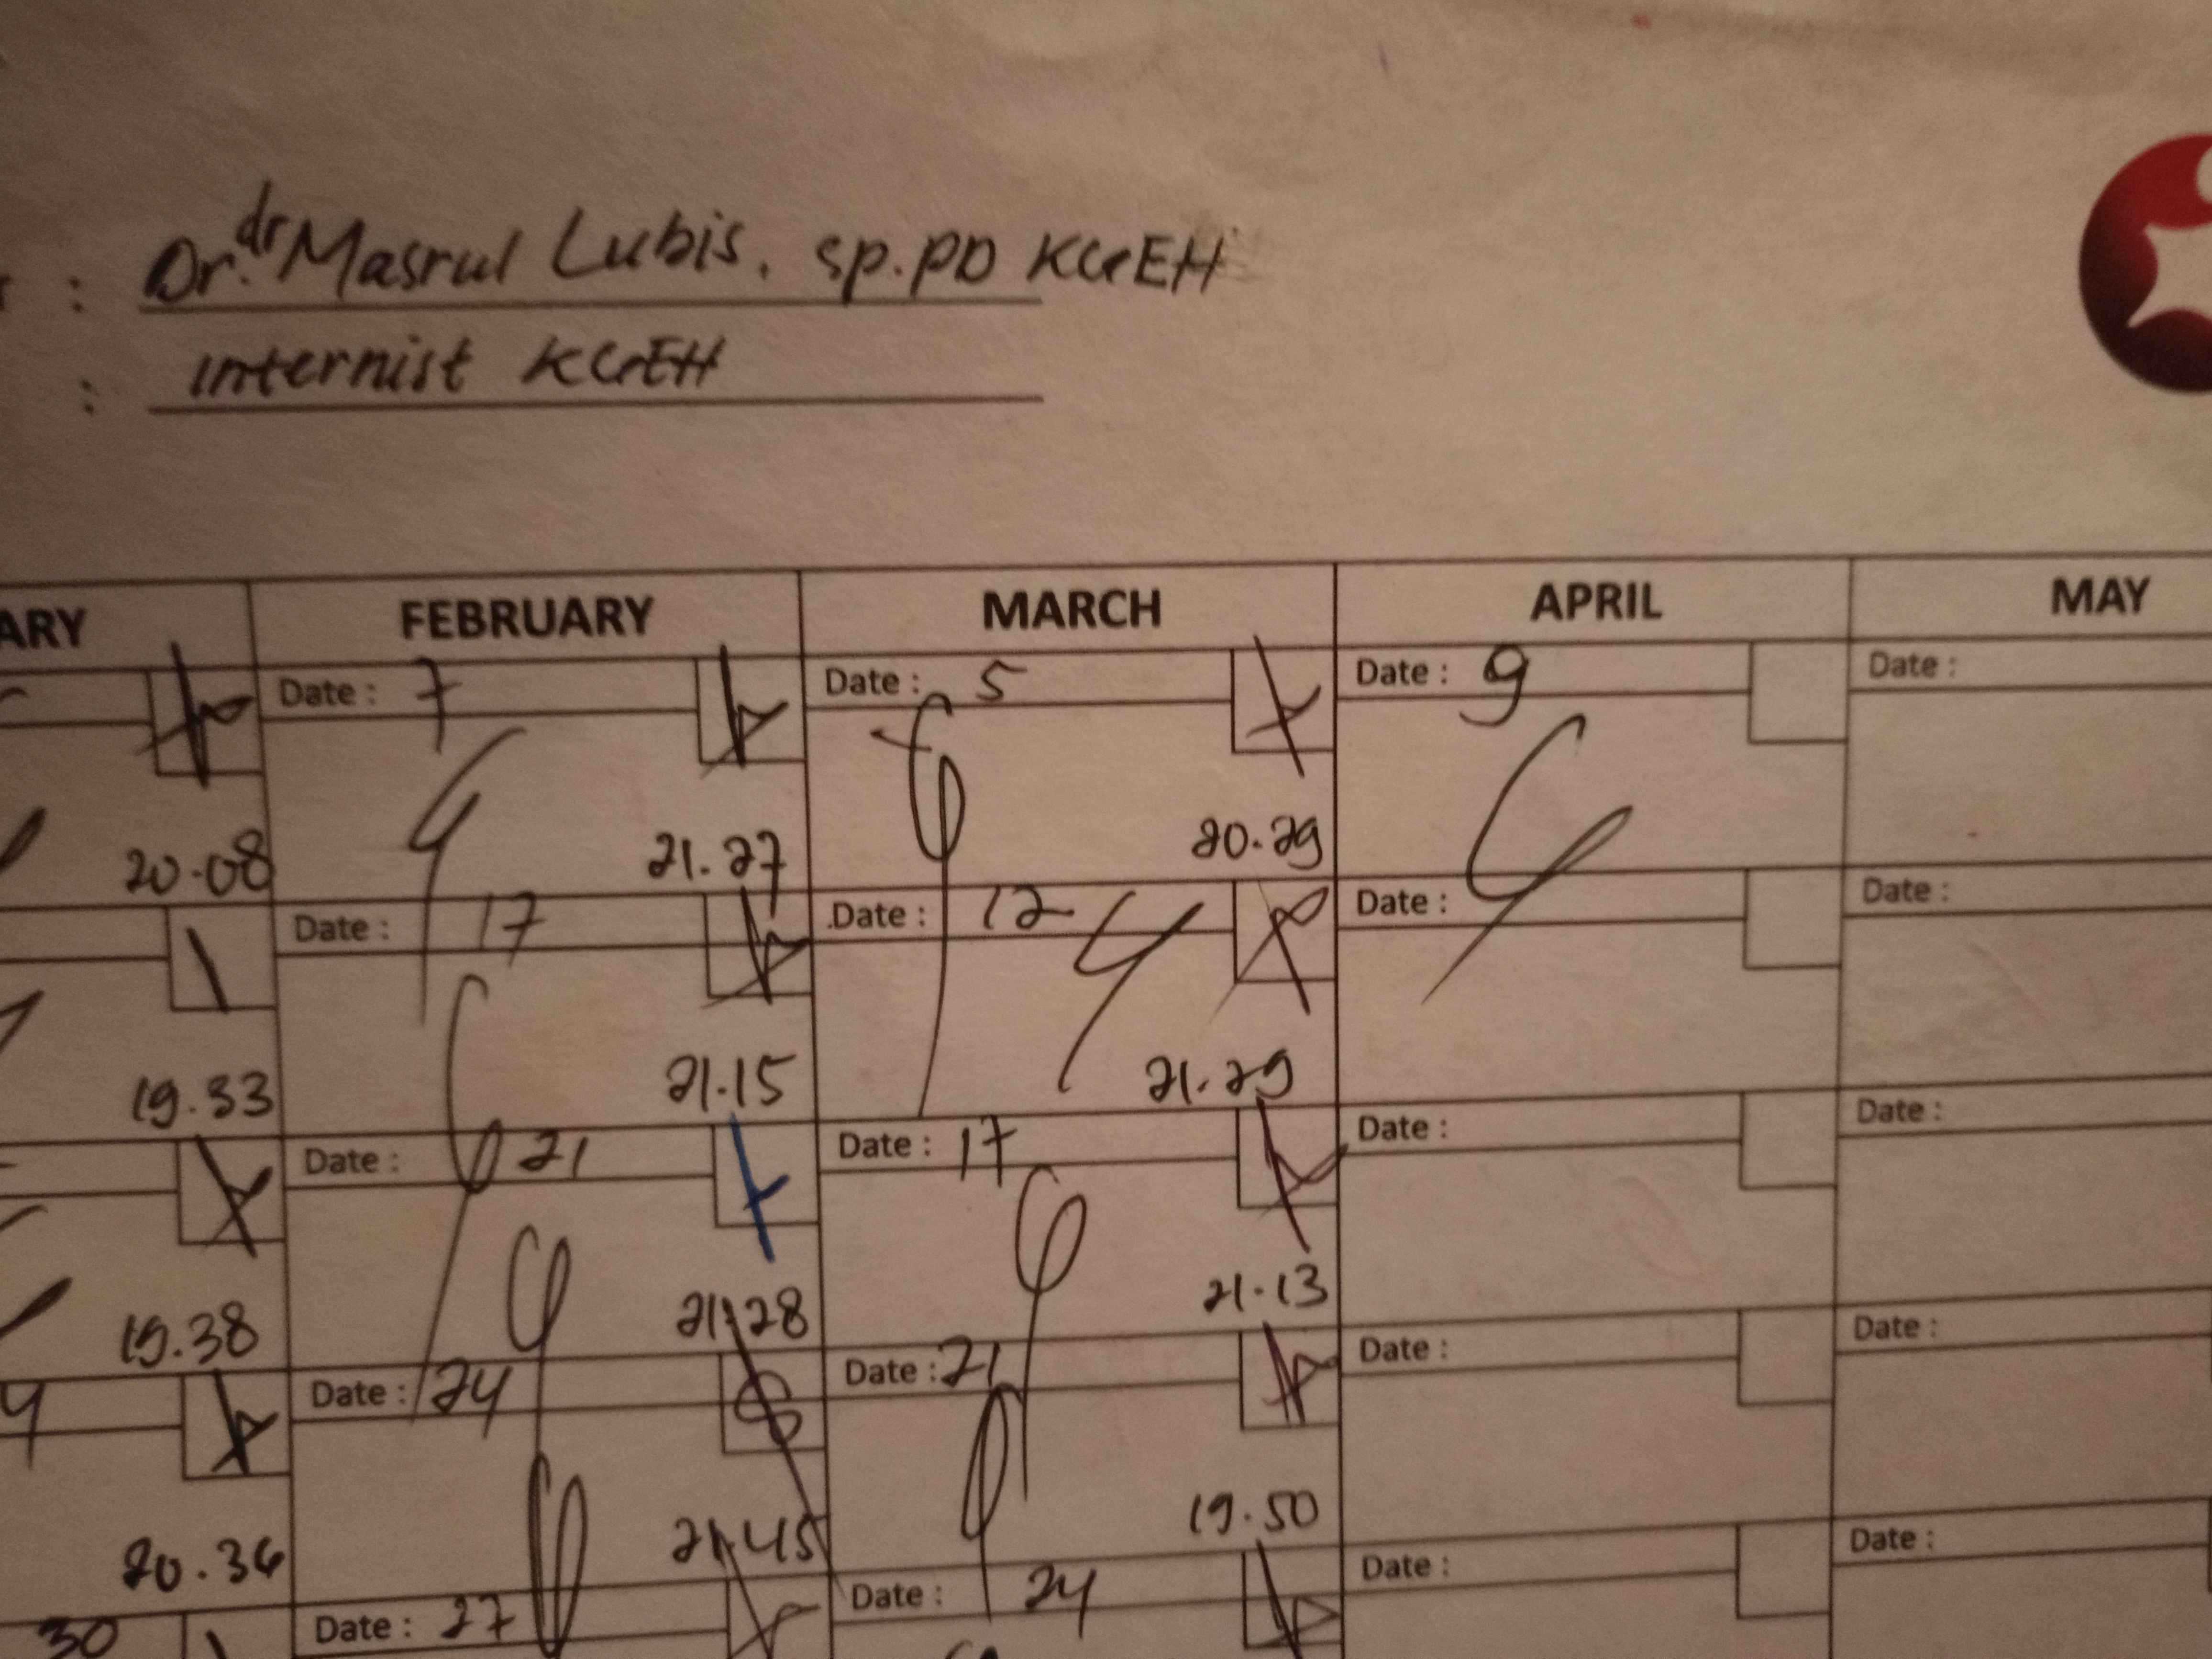 : Dr. dr Masrul Lubis. sp.PD KGEH
: internist KGEH
ARY FEBRUARY MARCH APRIL MAY
Date : 7 Date : 5 Date : 9 Date :
20.08 21.27 20.29
Date : 17 Date : 12 Date : Date :
19.33 21.15 21.29
Date : 21 Date : 17 Date : Date :
19.38 21.28 21.13
Date : 24 Date : 21 Date : Date :
20.36 21.45 19.50
30 Date : 27 Date : 24 Date : Date :